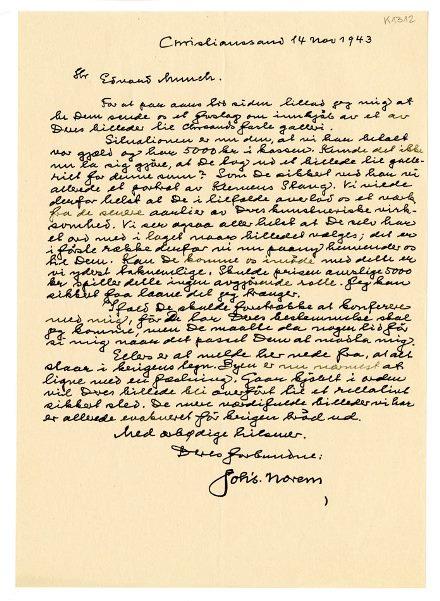 K1312
Christianssand 14 Nov 1943
Hr Edvard Munch.
For et par aars tid siden tillod jeg mig at
be Dem sende os et forslag om innkjöb av et av
Deres billeder til Chrsands faste galleri.
Situationen er nu den, at vi har betalt
vor gjæld og har 5000 kr i kassen. Kunde det ikke
nu la sig gjöre, at De lag ut et billede til galle-
riet for denne sum? Som De sikkert ved har vi
allerede et portræt av Klemens Stang. Vi vilde
derfor helst at De i tilfælde overlod os et verk
fra de senere aarlier av Deres kunstneriske virk-
somhed. Vi ser ogsaa aller helst at De selv har
et ord med i laget naar billedet vælges; det er
i förste række derfor vi nu paany henvender os
til Dem. Kan De komme os imöde med dette er
vi yderst taknemlige. Skulde prisen overstige 5000
kr spiller dette ingen avgjörende rolle. Jeg kan
sikkert faa laane det jeg trænger.
Ifald De skulde foretrække at konferere
med mig, för De tar Deres bestemmelse skal
jeg komme, men De maatte da nogen tid för
si mig naar det passet Dem at motta mig.
Ellers er at melde her nede fra, at alt
staar i krigens tegn. Byen er nu nærmest at
ligne med en fæstning. Gaar kjöbet i orden
vil Deres billede bli anbragt paa et relativt
sikkert sted. De mer værdifulde billeder vi har
er allerede evakueret för krigen bröd ud.
Med ærbödige hilsener.
Deres forbundne:
Johs. Norem